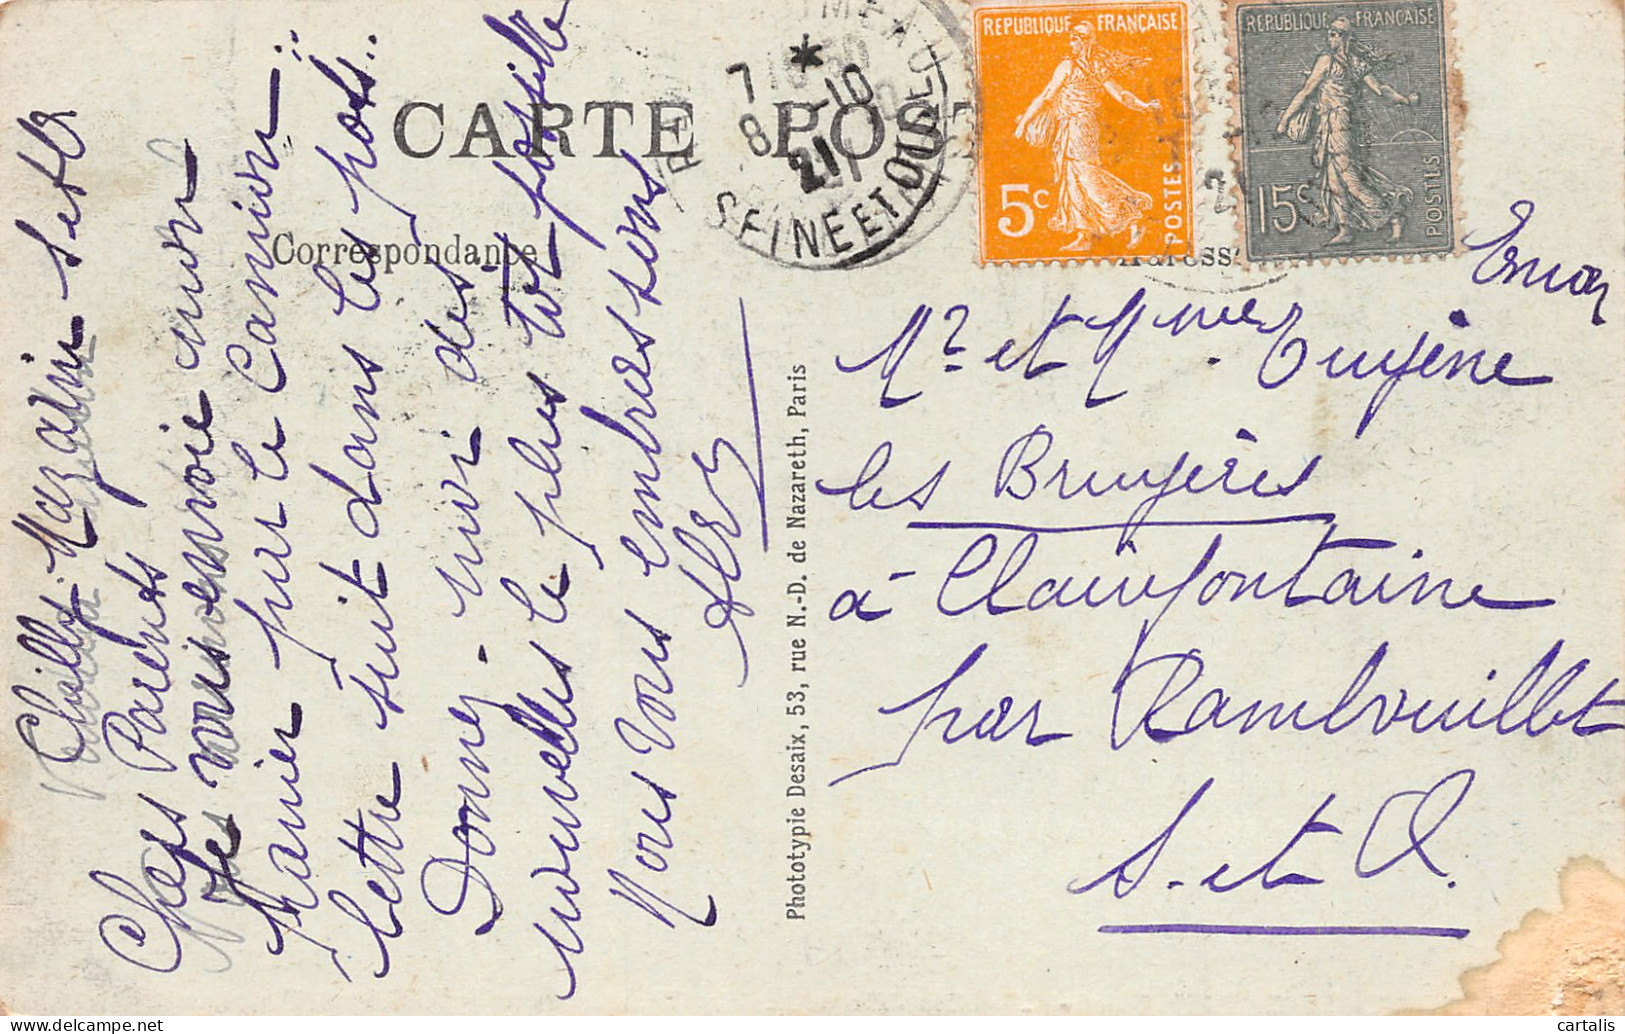 CARTE POST
Correspondance
Adresse
REPUBLIQUE FRANÇAISE
5c
POSTES
REPUBLIQUE FRANÇAISE
15c
POSTES
7 *
8 -10
21
SEINE ET OISE
Chilly-Mazarin
Chers Parents
Je vous envoie mon
panier par le Camion
lettre suit dans les pots..
Donnez-moi des
nouvelles le plus tôt possible
Nous vous embrassons
Phototypie Desaix, 53, rue N.-D. de Nazareth, Paris
Mr et Mme Eugène
les Bruyères
à Clairefontaine
par Rambouillet
S. et O.
cartalis